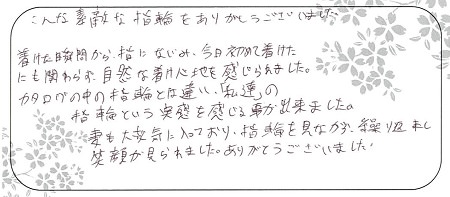 こんな素敵な指輪をありがとうございました
着けた瞬間から、指になじみ、今日初めて着けた
にも関わらず、自然な着け心地を感じられました。
カタログの中の指輪とは違い、「私達」の
指輪という実感を感じる事が出来ました。
妻も大変気に入っており、指輪を見ながら、繰り返し
笑顔が見られました。ありがとうございました